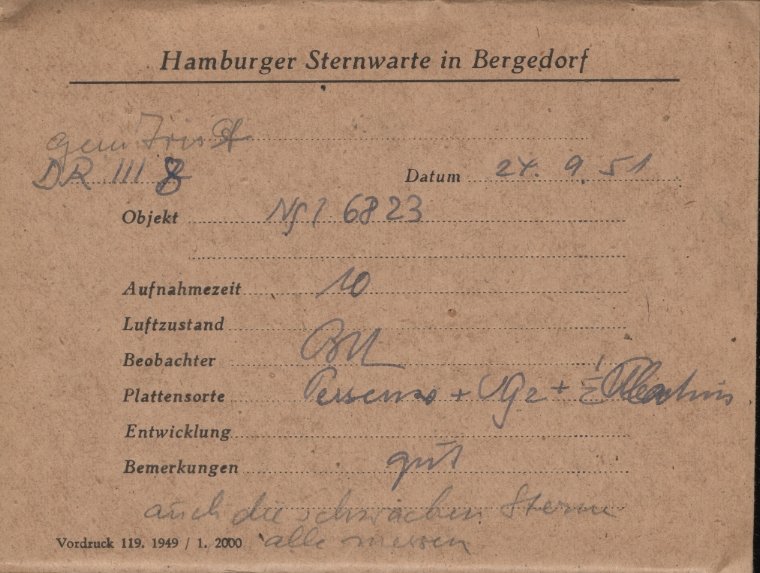 Hamburger Sternwarte in Bergedorf
gem
DR III 8 Datum 24. 9. 51
Objekt 6823
Aufnahmezeit 10
Luftzustand
Beobachter
Plattensorte + +
Entwicklung
Bemerkungen gut
auch die schwachen Sterne
alle messen
Vordruck 119. 1949 / 1. 2000